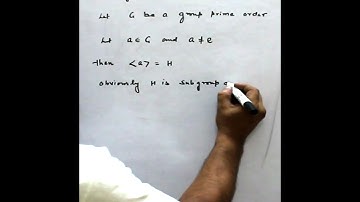 Let G be a group prime order
Let a ∈ G and a ≠ e
then <a> = H
obviously H is subgroup